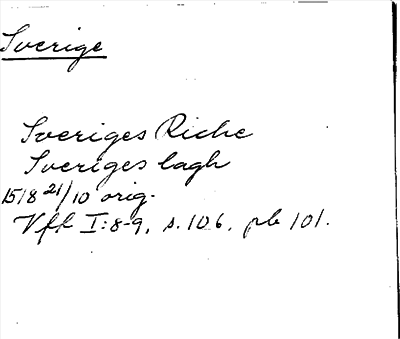 Sverige
Sveriges Riche
Sveriges lagh
1518 21/10 orig.
Vff I:8-9, s. 106, pb 101.